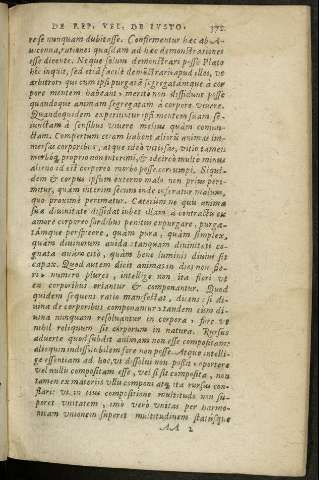 DE REP. VEL DE IVSTO. 375
re se nunquam dubitasse. Confirmentur hæc ab A-
uicenna, rationes quasdam ad hæc demonstrationes
esse dicente. Neque solum demonstrari posse Plato
hic inquit, sed etiã facile demõstrari apud illos, vt
arbitror, qui cum ipsi purgatã segregatamque à cor
pore mentem habeant, merito non diffidunt posse
quandoque animam segregatam à corpore viuere.
Quandoquidem experiuntur ipsi mentem suam se-
iunctam à sensibus viuere melius quàm coniun-
ctam. Compertum etiam habent alienũ animæ in-
esse vt corporibus, atque ideò vitiis suæ, vitiis tamen
morboq́; proprio non interimi, & idcirco multo minus
alieno id est corporeo morbo posse corrumpi. Siqui-
dem & corpus ipsum externo malo non prius peri-
mitur, quàm interim secum inde inseratur malum,
quo proximè perimatur. Cæterùm ne quis animæ
suæ diuinitate diffidat iubet illam à contractis ex
amore corporeo sordibus penitus expurgare, purga-
támque perspicere, quàm pura, quàm simplex,
quàm diuinorum auida: tanquam diuinitati co-
gnata quàm cito, quàm bene luminis diuini sit
capax. Quod autem dicit animas in dies non fie-
ri numero plures, intellige non ita fieri vt
ex corporibus oriantur & componantur. Quod
quidem sequens ratio manifestat, dicens: si di-
uina de corporibus componantur: tandem cum di-
uina nunquam resoluantur in corpora, fore vt
nihil reliquum sit corporum in natura. Rursus
aduerte quod subdit animam non esse compositam:
alioquin indissolubilem fore non posse. Atque intelli-
ge essentiam ad hoc, vt dissolui non possit oportere
vel nullo compositam esse, vel si sit composita, non
tamen ex materiis vllis componi atq́; ita rursus con-
stare: vt in eius compositione multitudo non su-
peret vnitatem, imò verò vnitas per harmo-
nicam vnionem superet multitudinem statúsque
AA 2